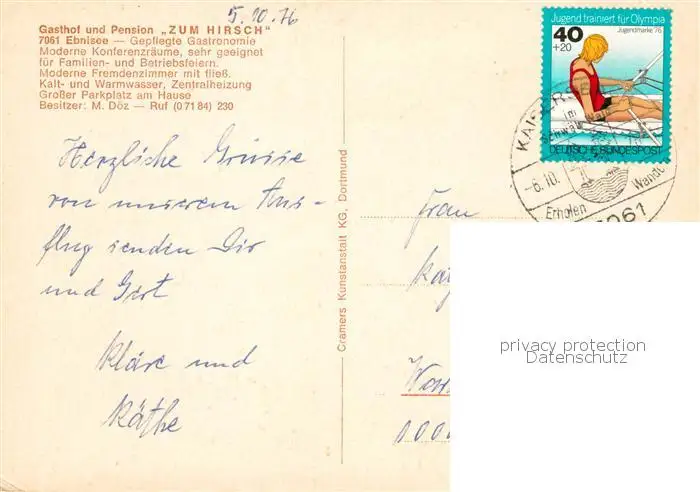 5.10.76
Gasthof und Pension „ZUM HIRSCH"
7061 Ebnisee — Gepflegte Gastronomie
Moderne Konferenzräume, sehr geeignet
für Familien- und Betriebsfeiern.
Moderne Fremdenzimmer mit fließ.
Kalt- und Warmwasser, Zentralheizung
Großer Parkplatz am Hause
Besitzer: M. Döz — Ruf (0 71 84) 230
Jugend trainiert für Olympia
Jugendmarke '76
40
+20
DEUTSCHE BUNDESPOST
im
-6.10.
Erholen
Wande
7061
Herzliche Grüsse
von unserem Aus-
flug senden Dir
und Gert
Kläre und
Käthe
Cramers Kunstanstalt KG, Dortmund
Frau
1000
privacy protection
Datenschutz